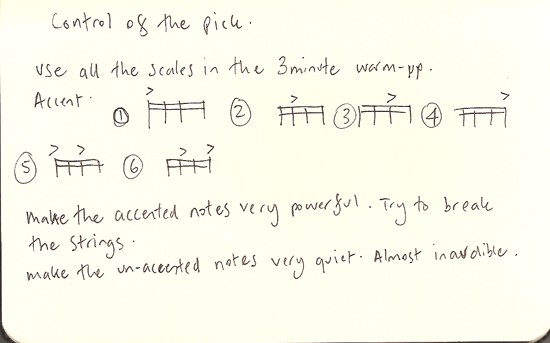 Control of the pick.
Use all the scales in the 3minute warm-up.
Accent. ① > ② > ③ > ④ >
⑤ > > ⑥ > >
make the accented notes very powerful. Try to break
the strings.
make the un-accented notes very quiet. Almost inaudible.